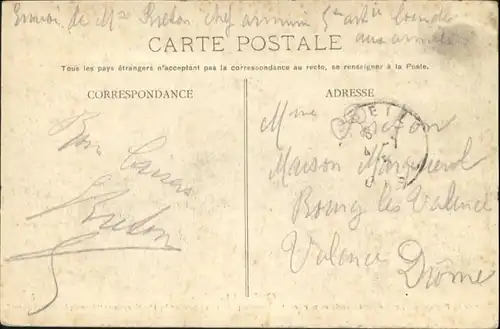 Envoi de Mr Bredon chef armurier 5e artie Coloniale
aux armées
CARTE POSTALE
Tous les pays étrangers n'acceptant pas la correspondance au recto, se renseigner à la Poste.
CORRESPONDANCE
Bon
Baisers
Bredon
ADRESSE
Mme Bredon
Maison
Bourg les Valence
Valence
Drôme